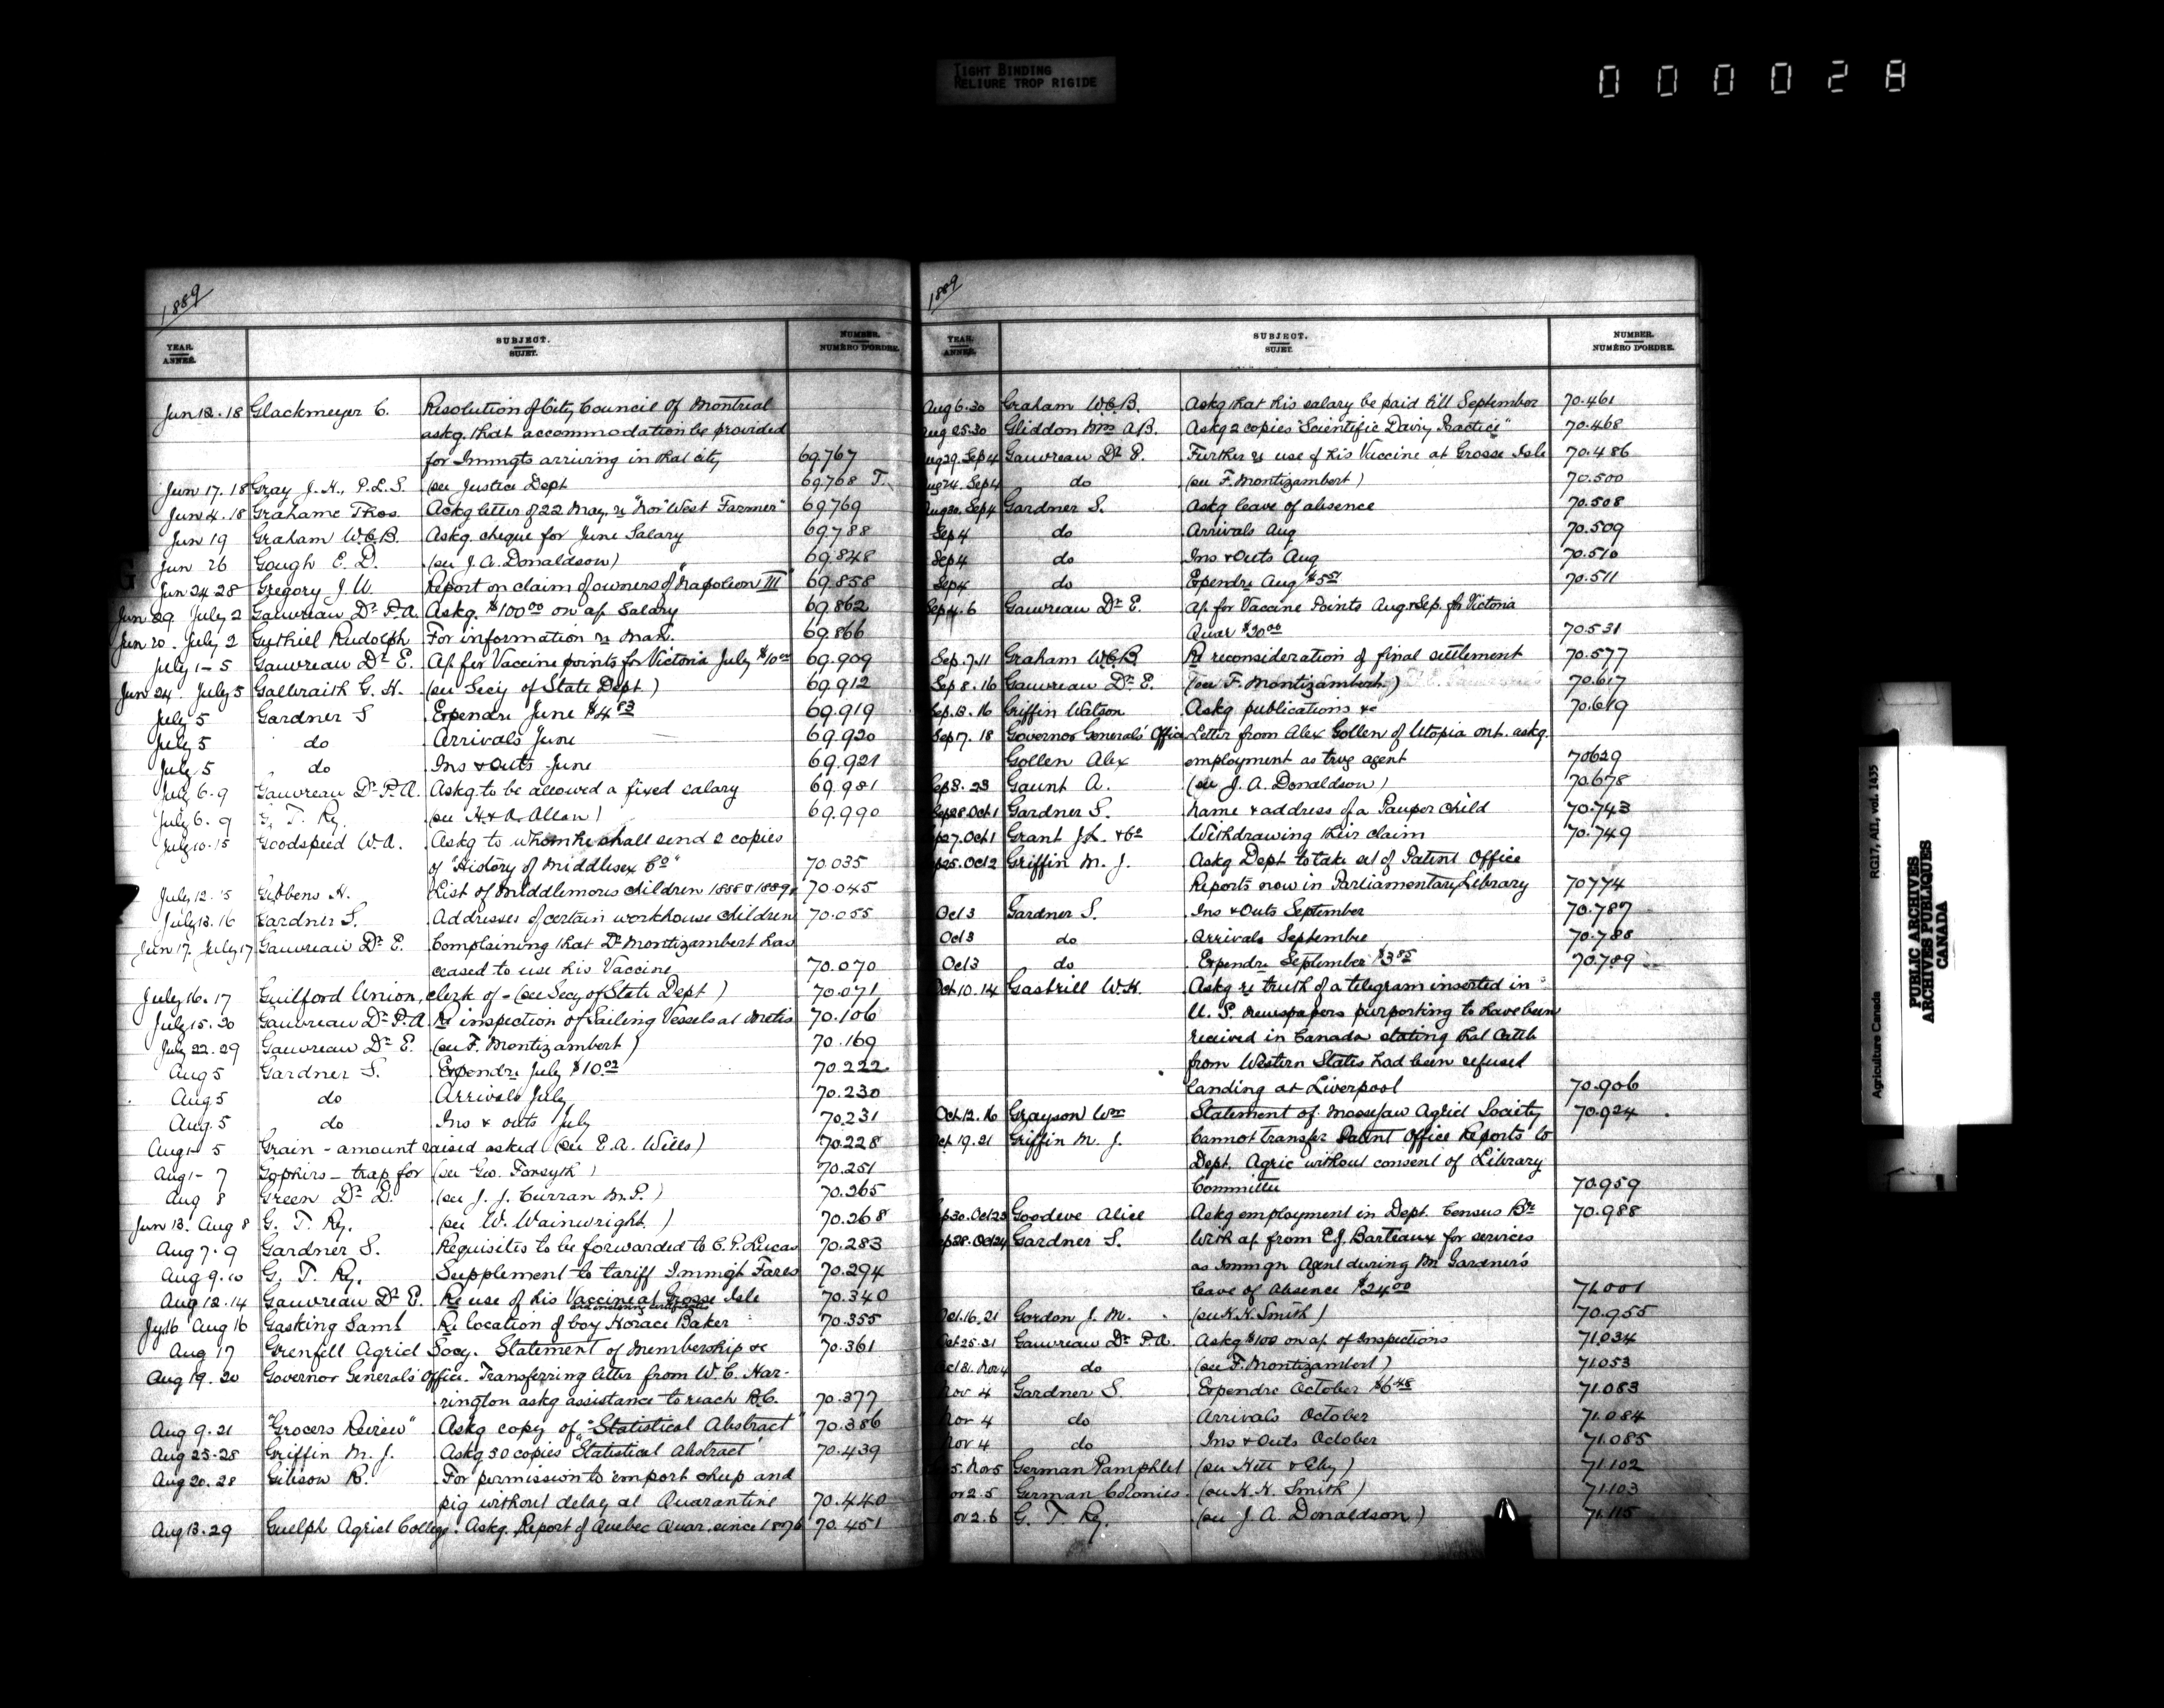 TIGHT BINDING
RELIURE TROP RIGIDE
000028
1889
YEAR. ANNÉE. SUBJECT. SUJET. NUMBER. NUMÉRO D'ORDRE.
Jun 12. 18 Glackmeyer C. Resolution of City Council of Montreal
askg. that accommodation be provided
for Immgts arriving in that city 69.767
Jun 17. 18 Gray J. H., P.L.S. (see Justice Dept 69.768 T.
Jun 4. 18 Grahame Thos. Ackg letter of 22 May, re "Nor' West Farmer" 69.769
Jun 19 Graham W.C.B. Askg. cheque for June Salary 69.788
Jun 26 Gough E. D. (see J. A. Donaldson) 69.848
Jun 24 28 Gregory J. U. Report on claim of owners of "Napoleon III" 69.858
Jun 29 July 2 Gauvreau Dr P.A. Askg. $100.00 on a/c Salary 69.862
Jun 20. July 2 Guthiel Rudolph For information re Man. 69.866
July 1-5 Gauvreau Dr E. A/c for Vaccine points for Victoria July $10.00 69.909
Jun 24. July 5 Galbraith G. H. (see Secy of State Dept) 69.912
July 5 Gardner S Expendre June $4.83 69.919
July 5 do Arrivals June 69.920
July 5 do Ins & Outs June 69.921
July 6. 9 Gauvreau Dr P.A. Askg to be allowed a fixed salary 69.981
July 6. 9 G. T. Ry. (see H. & A. Allan) 69.990
July 10. 15 Goodspeed W. A. Askg to whom he shall send 2 copies
of "History of Middlesex Co" 70.035
July 12. 15 Gibbens H. List of Middlemores children 1888 & 1889 70.045
July 13. 16 Gardner S. Addresses of certain workhouse children 70.055
Jun 17. July 17 Gauvreau Dr E. Complaining that Dr Montizambert has
ceased to use his Vaccine 70.070
July 16. 17 Guilford Union, clerk of - (see Secy of State Dept) 70.071
July 15. 20 Gauvreau Dr P.A. Re inspection of Sailing Vessels at Metis 70.106
July 22. 29 Gauvreau Dr E. (see F. Montizambert) 70.169
Aug 5 Gardner S. Expendre July $10.02 70.222
Aug. 5 do Arrivals July 70.230
Aug. 5 do Ins & outs July 70.231
Aug 1- 5 Grain - amount raised asked (see E. A. Wills) 70.228
Aug 1- 7 Gophers - trap for (see Geo. Forsyth) 70.251
Aug 8 Green Dr D. (see J. J. Curran M.P.) 70.265
Jun 13. Aug 8 G. T. Ry. (see W. Wainwright) 70.268
Aug 7. 9 Gardner S. Requisites to be forwarded to C. P. Lucas 70.283
Aug 9. 10 G. T. Ry. Supplement to tariff Immigt Fares 70.294
Aug 12. 14 Gauvreau Dr E. Re use of his Vaccine at Grosse Isle 70.340
and enclosing certificates
Jy 16 Aug 16 Gasking Saml Re location of boy Horace Baker 70.355
Aug 17 Grenfell Agricl Socy. Statement of membership &c 70.361
Aug 19. 20 Governor Generals' Office. Transferring letter from W. C. Har-
rington askg assistance to reach B.C. 70.377
Aug 9. 21 "Grocers Review" Askg copy of "Statistical Abstract" 70.386
Aug 25-28 Griffin M. J. Askg 50 copies "Statistical Abstract" 70.439
Aug 20. 28 Gibson R. For permission to import sheep and
pig without delay at Quarantine 70.440
Aug 13. 29 Guelph Agricl College. Askg. Report of Quebec Quar. since 1876 70.451
1889
YEAR. ANNÉE. SUBJECT. SUJET. NUMBER. NUMÉRO D'ORDRE.
Aug 6. 30 Graham W.C.B. Askg that his salary be paid till September 70.461
Aug 25. 30 Gliddon Mrs A.B. Askg 2 copies "Scientific Dairy Practice" 70.468
Aug 29. Sep 4 Gauvreau Dr E. Further re use of his Vaccine at Grosse Isle 70.486
Aug 24. Sep 4 do (see F. Montizambert) 70.500
Aug 30. Sep 4 Gardner S. Askg leave of absence 70.508
Sep 4 do Arrivals Aug 70.509
Sep 4 do Ins & Outs Aug 70.510
Sep 4 do Expendre Aug $5.51 70.511
Sep 4. 6 Gauvreau Dr E. A/c for Vaccine Points Aug & Sep. for Victoria
Quar $20.00 70.531
Sep. 7. 11 Graham W.C.B. Re reconsideration of final settlement 70.577
Sep 8. 16 Gauvreau Dr E. (see F. Montizambert) 70.617
Sep. 13. 16 Griffin Watson Askg publications &c 70.619
Sep 17. 18 Governor Generals' Office Letter from Alex Gollen of Utopia Ont. askg.
Gollen Alex employment as travg agent 70629
Sep 8. 23 Gaunt A. (see J. A. Donaldson) 70.678
Sep 28. Oct 1 Gardner S. Name & address of a Pauper Child 70.743
Sep 27. Oct 1 Grant J.L. & Co Withdrawing their claim 70.749
Sep 25. Oct 2 Griffin M. J. Askg Dept to take set of Patent Office
Reports now in Parliamentary Library 70774
Oct 3 Gardner S. Ins & Outs September 70.787
Oct 3 do Arrivals September 70.788
Oct 3 do Expendre September $3.85 70.789
Oct 10. 14 Gaskill W. H. Askg re truth of a telegram inserted in
U. S. newspapers purporting to have been
received in Canada stating that Cattle
from Western States had been refused
landing at Liverpool 70.906
Oct 12. 16 Grayson Wm Statement of Moosejaw Agricl Society 70.924
Oct 19. 21 Griffin M. J. Cannot transfer Patent Office Reports to
Dept. Agric without consent of Library
Committee 70.959
Sep 30. Oct 23 Goodeve Alice Askg employment in Dept. Census Bh 70.988
Sep 28. Oct 24 Gardner S. With a/c from E. J. Barteaux for services
as Immgn Agent during Mr Gardner's
leave of absence $24.00 71.001
Oct. 16. 21 Gordon J. M. (see H. H. Smith) 70.955
Oct 25. 31 Gauvreau Dr P.A. Askg $100 on a/c of Inspections 71.034
Oct 31. Nov 4 do (see F. Montizambert) 71.053
Nov 4 Gardner S. Expendre October $6.48 71.083
Nov 4 do Arrivals October 71.084
Nov 4 do Ins & Outs October 71.085
5. Nov 5 German Pamphlet (see Hett & Eby) 71.102
Nov 2. 5 German Colonies. (see H. H. Smith) 71.103
Nov 2. 6 G. T Ry. (see J. A. Donaldson) 71.115
Agriculture Canada RG17, AII, vol. 1435
PUBLIC ARCHIVES
ARCHIVES PUBLIQUES
CANADA